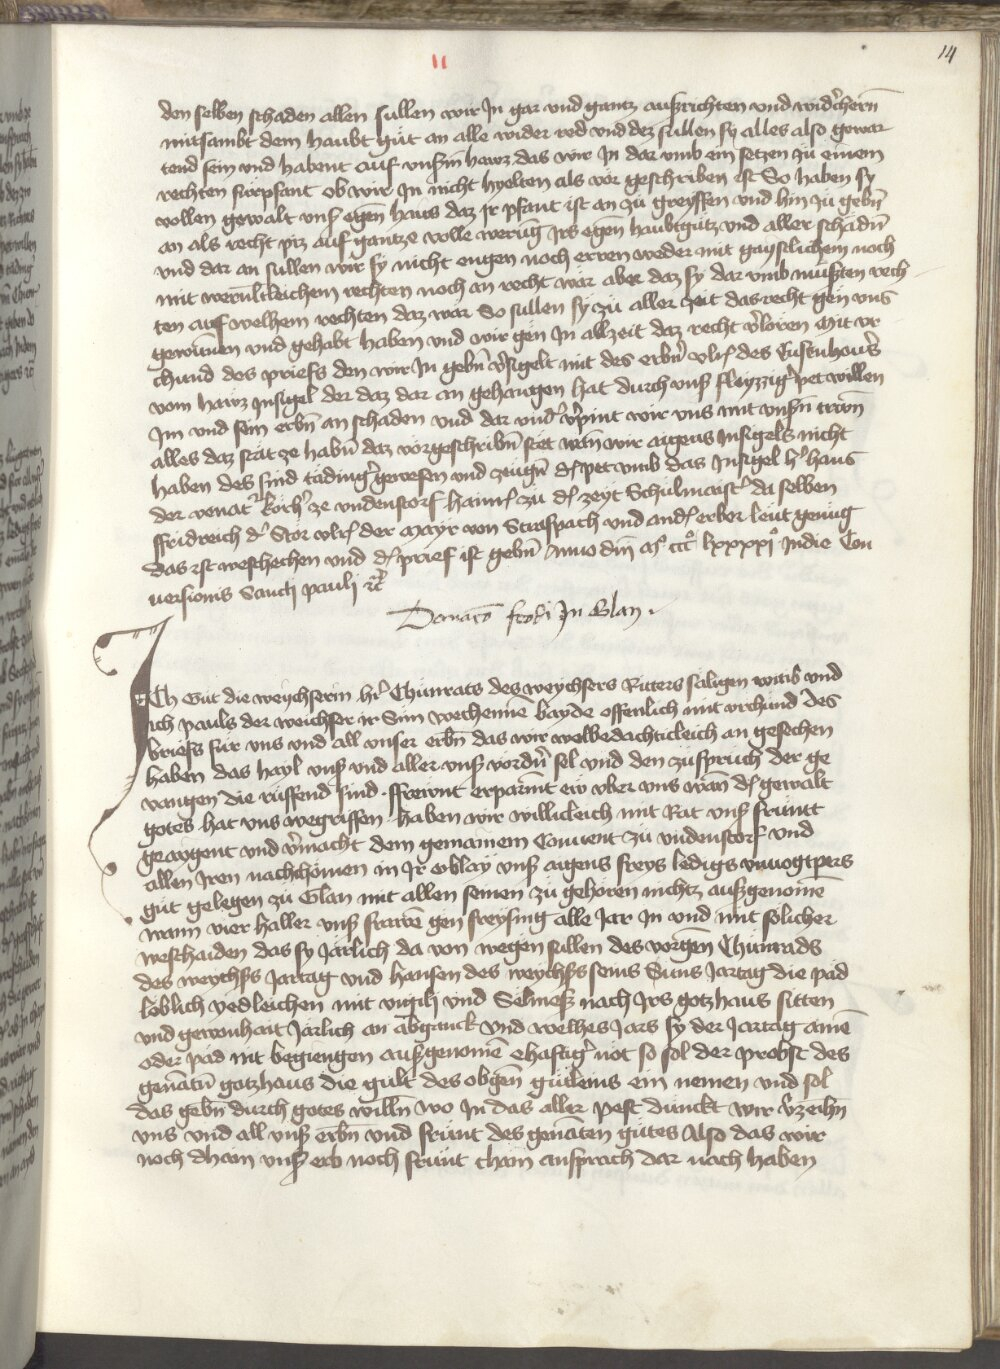 11
14
den selben schaden allen sullen wir In gar und gantz ausrichten und widerchern
mitsambt dem haubt gut an alle wider red und dez sullen sy alles also gewar
tend sein und habent auf unserm hawz das wir In dar umb ein setzen zu einem
rechten furpfant ob wir In nicht hyelten als vor geschriben ist So haben sy
vollen gewalt uns egen haus daz Ir pfant ist an zu greyffen und hin zu gebn
an als recht piz auf gantze volle werung Irs egen haubtgutz und aller schadn
und dar an sullen wir sy nicht engen noch erren weder mit gaystlichem noch
mit werultleichem rechten noch an recht wär aber daz sy dar umb musten rech
ten auf welhem rechten daz wär So sullen sy zu aller zeit das recht gen uns
gewunnen und gehabt haben und wir gen In allzeit daz recht verloren Mit ur
chund des priefs den wir In gebn versigelt mit des erbn ulr des
vom hawz Insigel der daz dar an gehangen hat durch unser fleyzziger pet willen
Im und sein erbn an schaden und dar under verpint wir uns mit unsern trewn
alles daz stät ze habn daz vorgeschribn stet wan wir aigens Insigels nicht
haben des sind täding gewesen und zeugn der pet umb das Insigel her hans
der venat kirch ze undenstorf hainr zu der zeyt Schulmaister da selben
ffridreich der Stör ulr der mayr von Straspach und ander erber leut genug
das ist weschechen und der prief ist gebn Anno dni M ccc lxxxxi Indie Con
versionis Sancti pauli etc
Donatio In Glan
ICh Gut die weychserin her Chunrats des weychsers Ritters säligen witib und
ich pauls der weichser ir Sun vechennen bayde offenlich mit urchund des
briefs für uns und all unser erbn das wir wolbedachticleich an gesechen
haben das hayl unser und aller unser vordern sel und den zuspruch der ge
vangen die ruffend sind ffrewnt erparmt ew uber uns wan der gewalt
gotes hat uns wegriffen haben wir willicleich mit Rat unser frunt
geaygent und vermacht dem gemainem Convent zu undenstorf und
allen Iren nachchomen in Ir oblay unser aigens freys ledigs unvogtpers
gut gelegen zu Glan mit allen seinen zu gehören nichtz ausgenomen
wann vier haller unser frawen gen freysing alle Jar In und mit solicher
weschaiden das sy Järlich da von wegen sullen des vorgen Chunrads
des weychsers Jartag und hansen des weychsers seins Suns Jartag die päd
loblich yedleichen mit vigily und Selmess nach Irs gotzhaus sitten
und gewonhait Järlich an abganck und welhes Jars sy der Jartag ainen
oder päd nit begiengen ausgenomen ehaftiger not so sol der probst des
genatn gotzhaus die gült des obgen gütleins ein nemen und sol
das gebn durch gotes willn wo In das aller pest dunckt wir verzeihn
uns und all unser erbn und frunt des genaten gutes Also das wir
noch dhain unser erb noch frunt chain ansprach dar nach haben